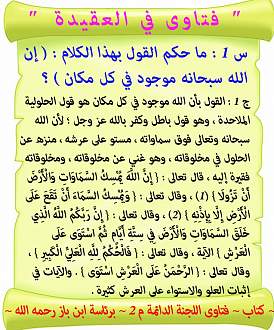 " فتاوى في العقيدة "
س 1 : ما حكم القول بهذا الكلام : ( إن
الله سبحانه موجود في كل مكان ) ؟
ج 1 : القول بأن الله موجود في كل مكان هو قول الحلولية
الملاحدة ، وهو قول باطل وكفر بالله عز وجل ؛ لأن الله
سبحانه وتعالى فوق سماواته ، مستو على عرشه ، منزه عن
الحلول في مخلوقاته ، وهو غني عن مخلوقاته ، ومخلوقاته
فقيرة إليه ، قال تعالى : { إِنَّ اللَّهَ يُمْسِكُ السَّمَاوَاتِ وَالْأَرْضَ
أَنْ تَزُولَا } (1) ، وقال تعالى : { وَيُمْسِكُ السَّمَاءَ أَنْ تَقَعَ عَلَى
الْأَرْضِ إِلَّا بِإِذْنِهِ } (2) ، وقال تعالى : { إِنَّ رَبَّكُمُ اللَّهُ الَّذِي
خَلَقَ السَّمَاوَاتِ وَالْأَرْضَ فِي سِتَّةِ أَيَّامٍ ثُمَّ اسْتَوَى عَلَى
الْعَرْشِ } الآية ، وقال تعالى : { فَالْحُكْمُ لِلَّهِ الْعَلِيِّ الْكَبِيرِ } ،
وقال تعالى : { الرَّحْمَنُ عَلَى الْعَرْشِ اسْتَوَى } . والآيات في
إثبات العلو والاستواء على العرش كثيرة .
كتاب ~ فتاوى اللجنة الدائمة م 2 ~ برئاسة ابن باز رحمه الله ~